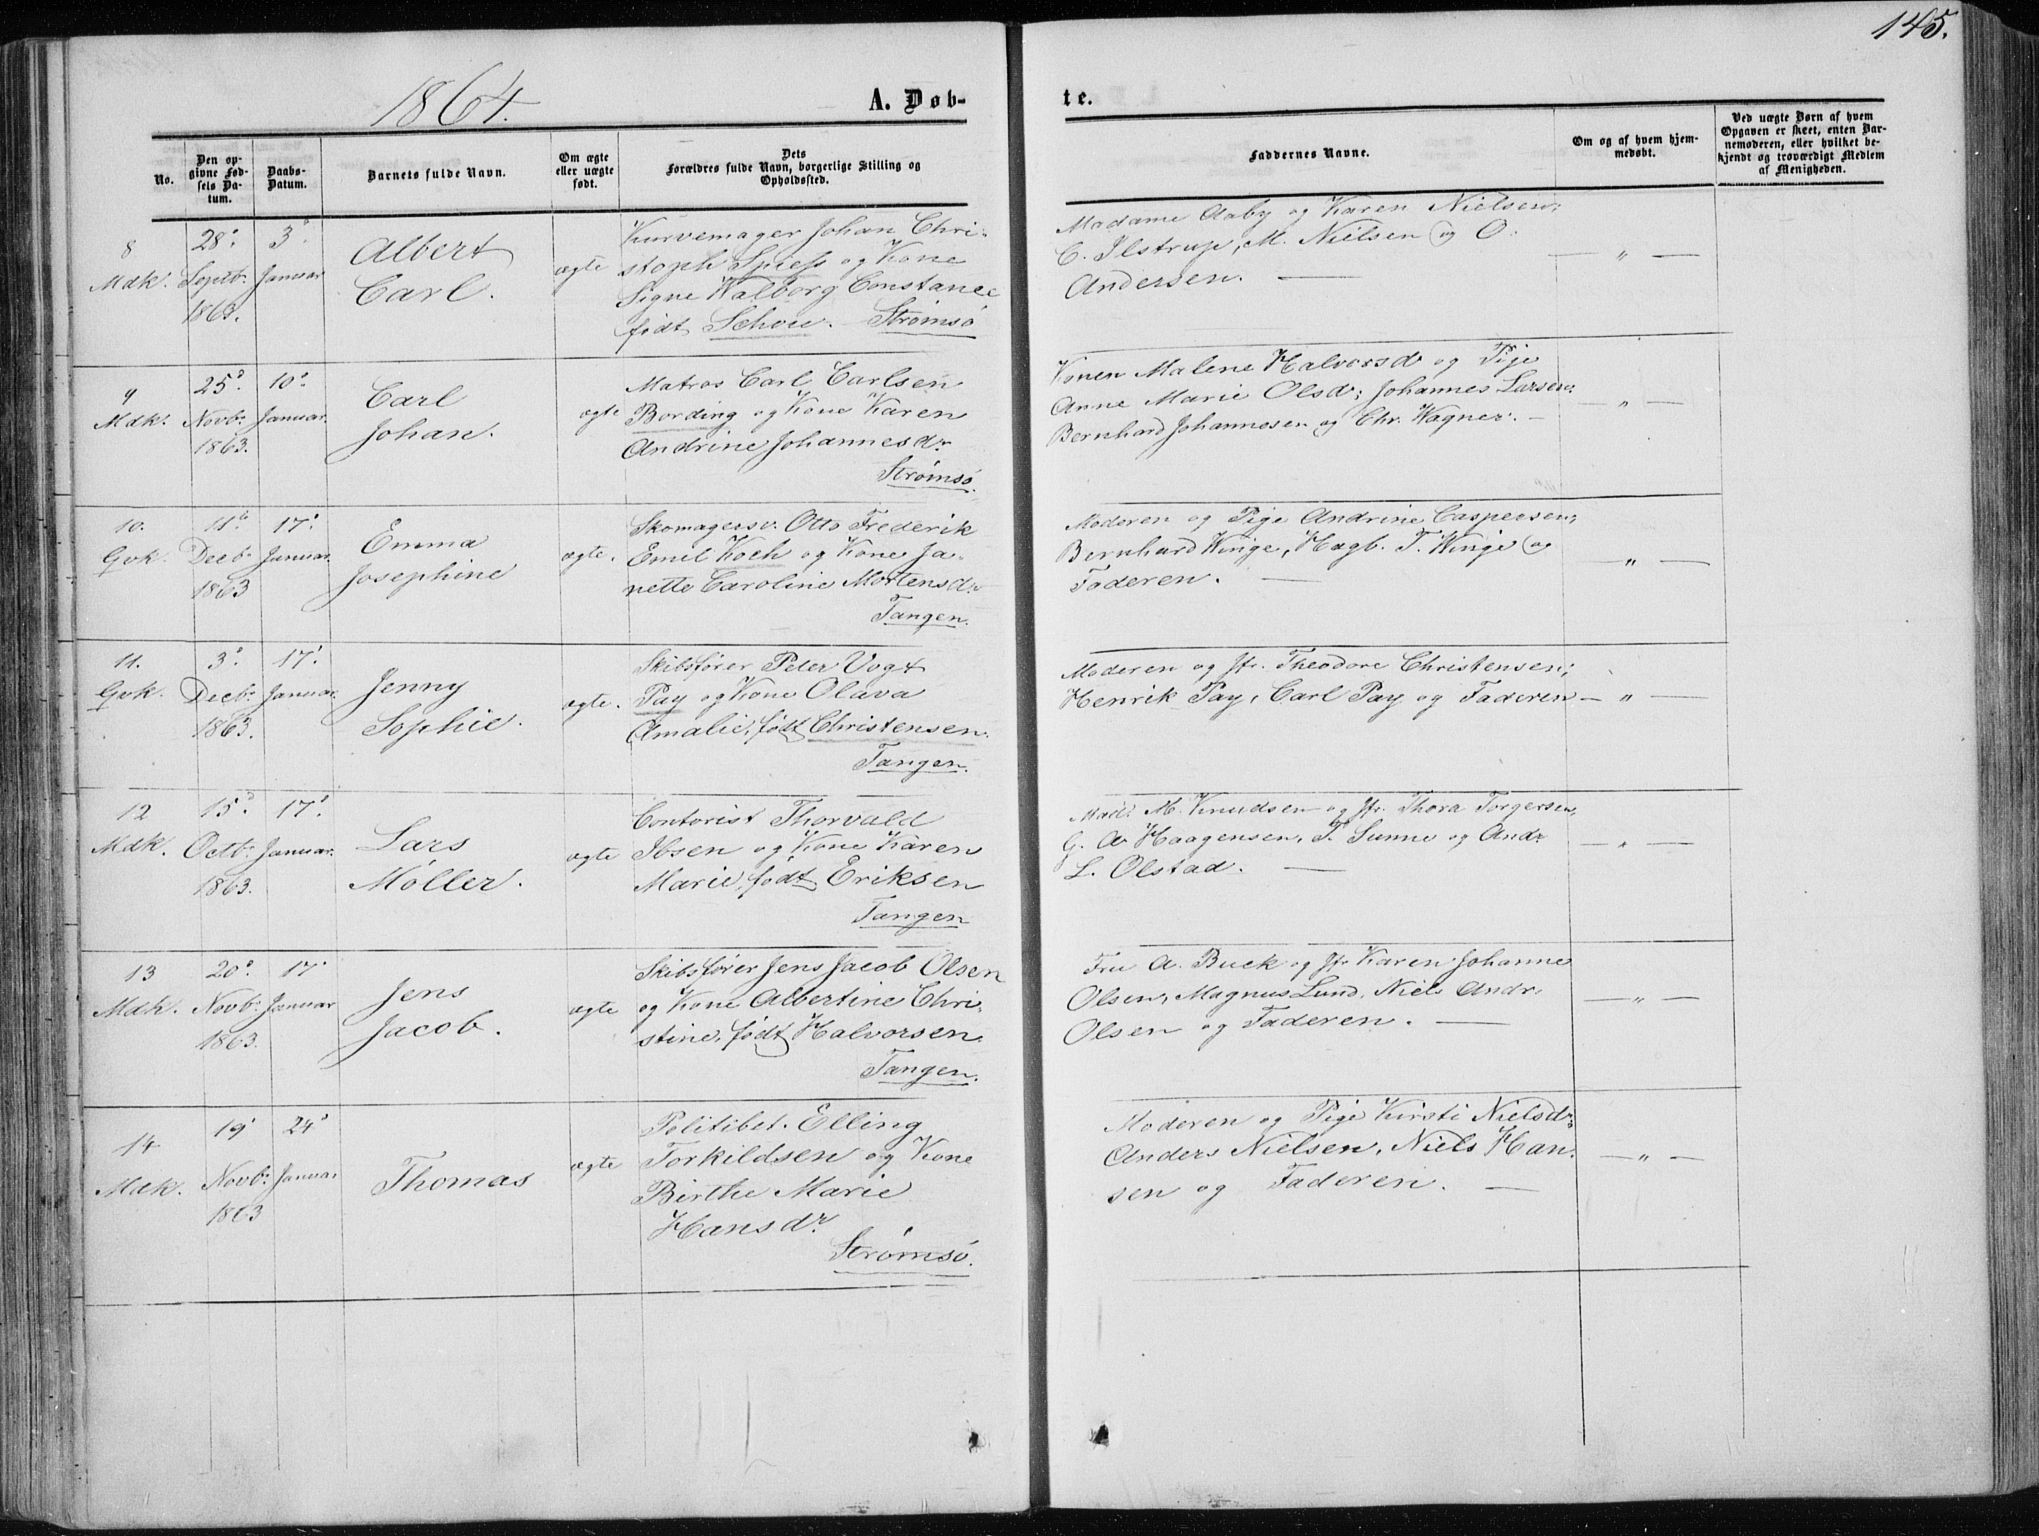 145.
1864.
A. Døb-
te.
No.
Den op-
givne Fød-
sels Da-
tum.
Daabs-
Datum.
Barnets fulde Navn.
Om ægte
eller uægte
født.
Dets
Forældres fulde Navn, borgerlige Stilling og
Opholdssted.
Faddernes Navne.
Om og af hvem hjem-
medøbt.
Ved uægte Børn af hvem
Opgaven er skeet, enten Bar-
nemoderen, eller hvilket be-
kjendt og troværdigt Medlem
af Menigheden.
8
Mdk.
28de
Septb.
1863.
3de
Januar
Albert
Carl.
ægte
Kurvemager Johan Chri-
stoph Spiess og Kone
Signe Walborg Constance
født Schou. Strømsö
Madame Aaby og Karen Nielsen;
C. Ilstrup, M. Nielsen og O.
Andersen. —
— " —
9
Mdk.
25de
Novb.
1863.
10de
Januar.
Carl
Johan.
ægte
Matros Carl Carlsen
Bording og Kone Karen
Andrine Johannesdr
Strømsö.
Konen Malene Halvorsd og Pige
Anne Marie Olsd; Johannes Larsen;
Bernhard Johannesen og Chr. Wagner. —
— " —
10.
Qvk.
11te
Decb.
1863
17.
Januar.
Emma
Josephine
ægte.
Skomagersv. Otto Frederik
Emil Koch og Kone Ja-
nette Caroline Mortensdr
Tangen.
Moderen og Pige Andrine Caspersen;
Bernhard Winge, Hagb. T. Winge og
Faderen. —
— " —
11.
Qvk.
3de
Decb.
1863.
17.
Januar.
Jenny
Sophie.
ægte.
Skibsfører Peter Vogt
Pay og Kone Olava
Amalie, født Christensen.
Tangen.
Moderen og Jfr. Theodore Christensen;
Henrik Pay, Carl Pay og Faderen
— " —
12
Mdk.
15de
Octb.
1863.
17.
Januar.
Lars
Möller.
ægte
Contorist Thorvald
Ibsen og Kone Karen
Marie, født Eriksen
Tangen
Mad. M. Knudsen og Jfr. Thora Torgersen,
G. A Haagensen, T. Sunne og Andr
L. Olstad. —
— " —
13
Mdk.
20de
Novb.
1863.
17.
Januar
Jens
Jacob.
ægte
Skibsfører Jens Jacob Olsen
og Kone Albertine Chri-
stine, født Halvorsen.
Tangen.
Fru A. Buck og Jfr Karen Johanne
Olsen, Magnus Lund, Niels Andr.
Olsen og Faderen. —
— " —
14
Mdk.
19.
Novb.
1863
24de
Januar
Thomas
ægte
Politibet. Elling
Torkildsen og Kone
Birthe Marie
Hansdr.
Strømsö.
Moderen og Pige Kirsti Nielsdr;
Anders Nielsen, Niels Han-
sen og Faderen. —
— " —